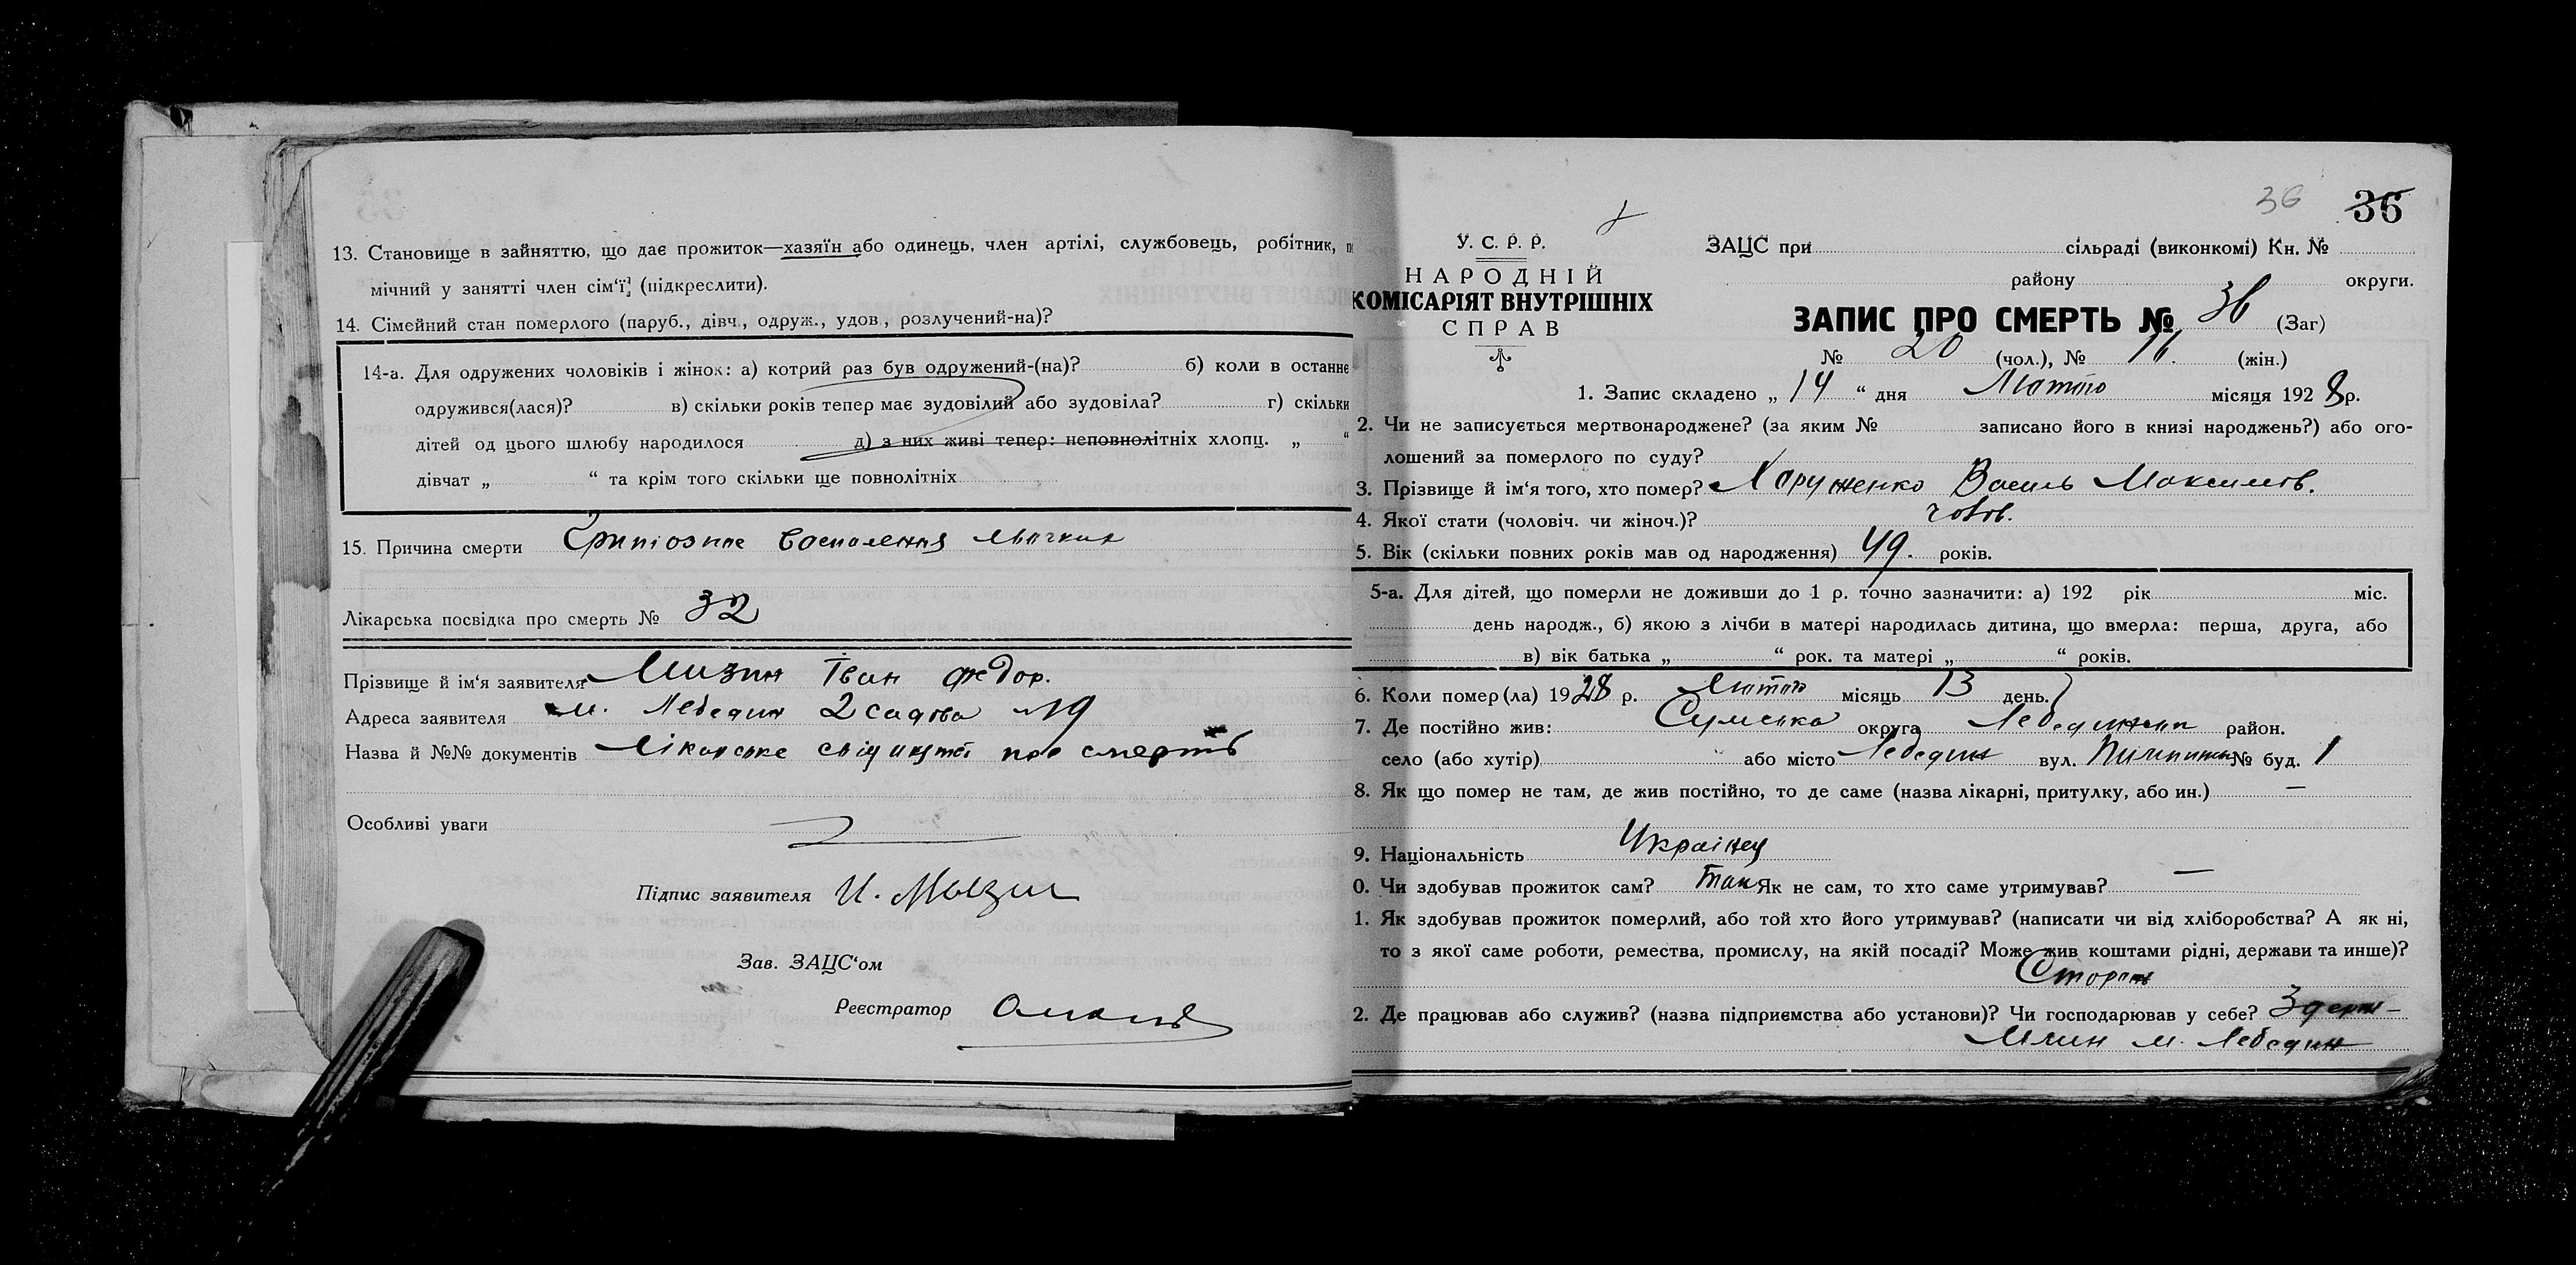 13. Становище в зайняттю, що дає прожиток—хазяїн або одинець, член артілі, службовець, робітник, по
мічний у занятті член сім'ї (підкреслити).
14. Сімейний стан померлого (паруб., дівч., одруж., удов., розлучений-на)?
14-а. Для одружених чоловіків і жінок: а) котрий раз був одружений-(на)? б) коли в останнє
одружився(лася)? в) скільки років тепер має зудовілий або зудовіла? г) скільки
дітей од цього шлюбу народилося д) з них живі тепер: неповнолітніх хлопц. „ “
дівчат „ “ та крім того скільки ще повнолітніх
15. Причина смерти
Лікарська посвідка про смерть № 32
Прізвище й ім'я заявителя Мизин Іван Федор.
Адреса заявителя м. Лебедин 2 садова №19
Назва й №№ документів Лікарське про смерть
Особливі уваги
Підпис заявителя И. Мызин
Зав. ЗАЦС'ом
Реєстратор
36 36
У. С. Р. Р.
НАРОДНІЙ
КОМІСАРІЯТ ВНУТРІШНІХ
СПРАВ
ЗАЦС при сільраді (виконкомі) Кн. №
району округи.
ЗАПИС ПРО СМЕРТЬ № 36 (Заг)
№ 20 (чол.), № 16. (жін.)
1. Запис складено „ 14 “ дня Лютого місяця 1928 р.
2. Чи не записується мертвонароджене? (за яким № записано його в книзі народжень?) або ого-
лошений за померлого по суду?
3. Прізвище й ім'я того, хто помер? Харуженко Василь Максимов.
4. Якої стати (чоловіч. чи жіноч.)? чолов.
5. Вік (скільки повних років мав од народження) 49. років.
5-а. Для дітей, що померли не доживши до 1 р. точно зазначити: а) 192 рік міс.
день народж., б) якою з лічби в матері народилась дитина, що вмерла: перша, друга, або
в) вік батька „ “ рок. та матері „ “ років.
6. Коли помер(ла) 1928 р. Лютого місяць 13 день.
7. Де постійно жив: Сумська округа Лебединськ район.
село (або хутір) або місто Лебедин вул. № буд. 1
8. Як що помер не там, де жив постійно, то де саме (назва лікарні, притулку, або ин.) —
9. Національність Українец
0. Чи здобував прожиток сам? Так Як не сам, то хто саме утримував? —
1. Як здобував прожиток померлий, або той хто його утримував? (написати чи від хліборобства? А як ні,
то з якої саме роботи, ремества, промислу, на якій посаді? Може жив коштами рідні, держави та инше)?
Сторож
2. Де працював або служив? (назва підприємства або установи)? Чи господарював у себе? 3 держ-
Млин м. Лебедин